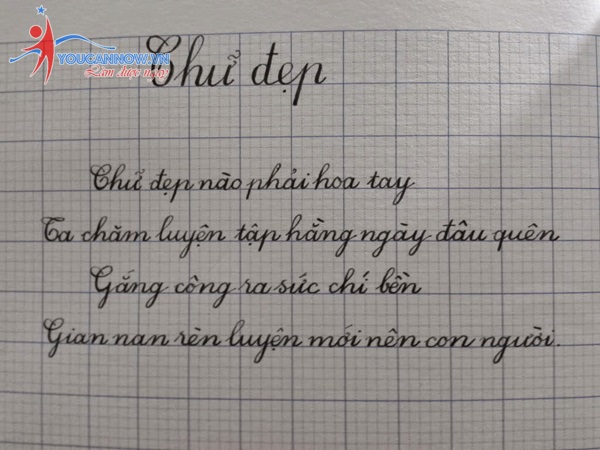 YOUCANNOW.VN
Làm được ngay
Chữ đẹp
Chữ đẹp nào phải hoa tay
Ta chăm luyện tập hằng ngày đâu quên
Gắng công ra sức chí bền
Gian nan rèn luyện mới nên con người.